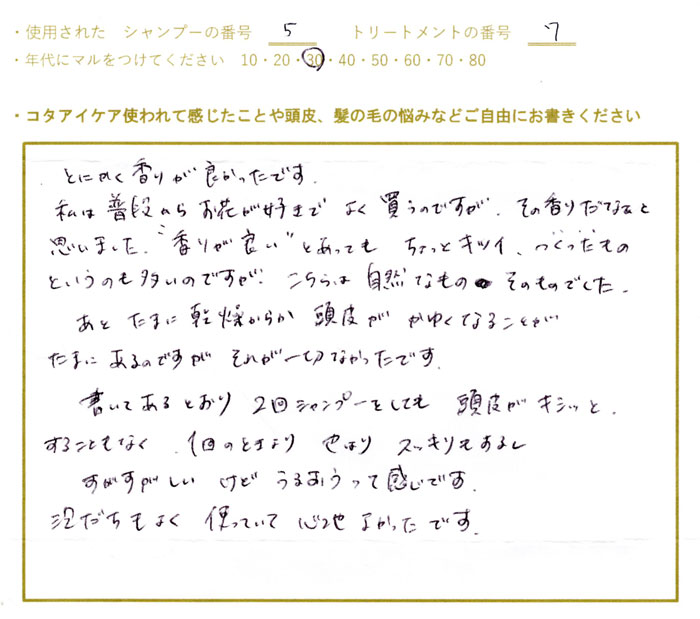 ・使用された　シャンプーの番号　5　　トリートメントの番号　7
・年代にマルをつけてください　10・20・30・40・50・60・70・80
・コタアイケア使われて感じたことや頭皮、髪の毛の悩みなどご自由にお書きください
とにかく香りが良かったです.
私は普段からお花が好きで よく買うのですが、その香りだなぁと
思いました. "香りが良い" とあっても ちょっとキツイ、つくったもの
というのも多いのですが. こちらは自然なもの そのものでした.
あと たまに乾燥からか 頭皮が かゆくなることが
たまにあるのですが それが一切なかったです.
書いてあるとおり 2回シャンプーをしても 頭皮がキシッと.
することもなく. 1回のときより やはり スッキリもあるし
すがすがしい けど うるおうって感じです.
泡だちもよく 使っていて 心地よかったです.